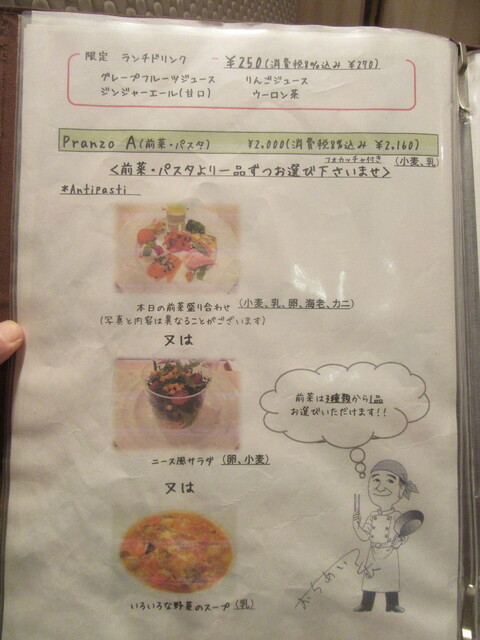 限定 ランチドリンク ¥250(消費税8%込み ¥270)
グレープフルーツジュース りんごジュース
ジンジャーエール(甘口) ウーロン茶
Pranzo A(前菜・パスタ) ¥2,000(消費税8%込み ¥2,160)
フォカッチャ付き (小麦、乳)
<前菜・パスタより一品ずつお選び下さいませ>
*Antipasti
本日の前菜盛り合わせ (小麦、乳、卵、海老、カニ)
(写真と内容は異なることがございます)
又は
前菜は3種類から1品
お選びいただけます!!
ニース風サラダ (卵、小麦)
又は
いろいろな野菜のスープ (乳)